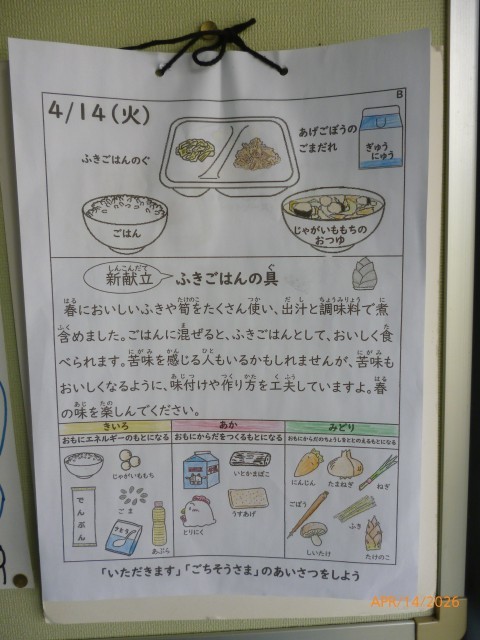 B
4/14(火)
ふきごはんのぐ
あげごぼうの
ごまだれ
ぎゅう
にゅう
ごはん
じゃがいももちの
おつゆ
新献立
ふきごはんの具
春においしいふきや筍をたくさん使い、出汁と調味料で煮
含めました。ごはんに混ぜると、ふきごはんとして、おいしく食
べられます。苦味を感じる人もいるかもしれませんが、苦味も
おいしくなるように、味付けや作り方を工夫していますよ。春
の味を楽しんでください。
きいろ
おもにエネルギーのもとになる
あか
おもにからだをつくるもとになる
みどり
おもにからだのちょうしをととのえるもとになる
じゃがいももち
でんぷん
ごま
さとう
あぶら
いとかまぼこ
とりにく
うすあげ
にんじん
たまねぎ
ねぎ
ごぼう
ふき
しいたけ
たけのこ
「いただきます」「ごちそうさま」のあいさつをしよう
APR/14/2026